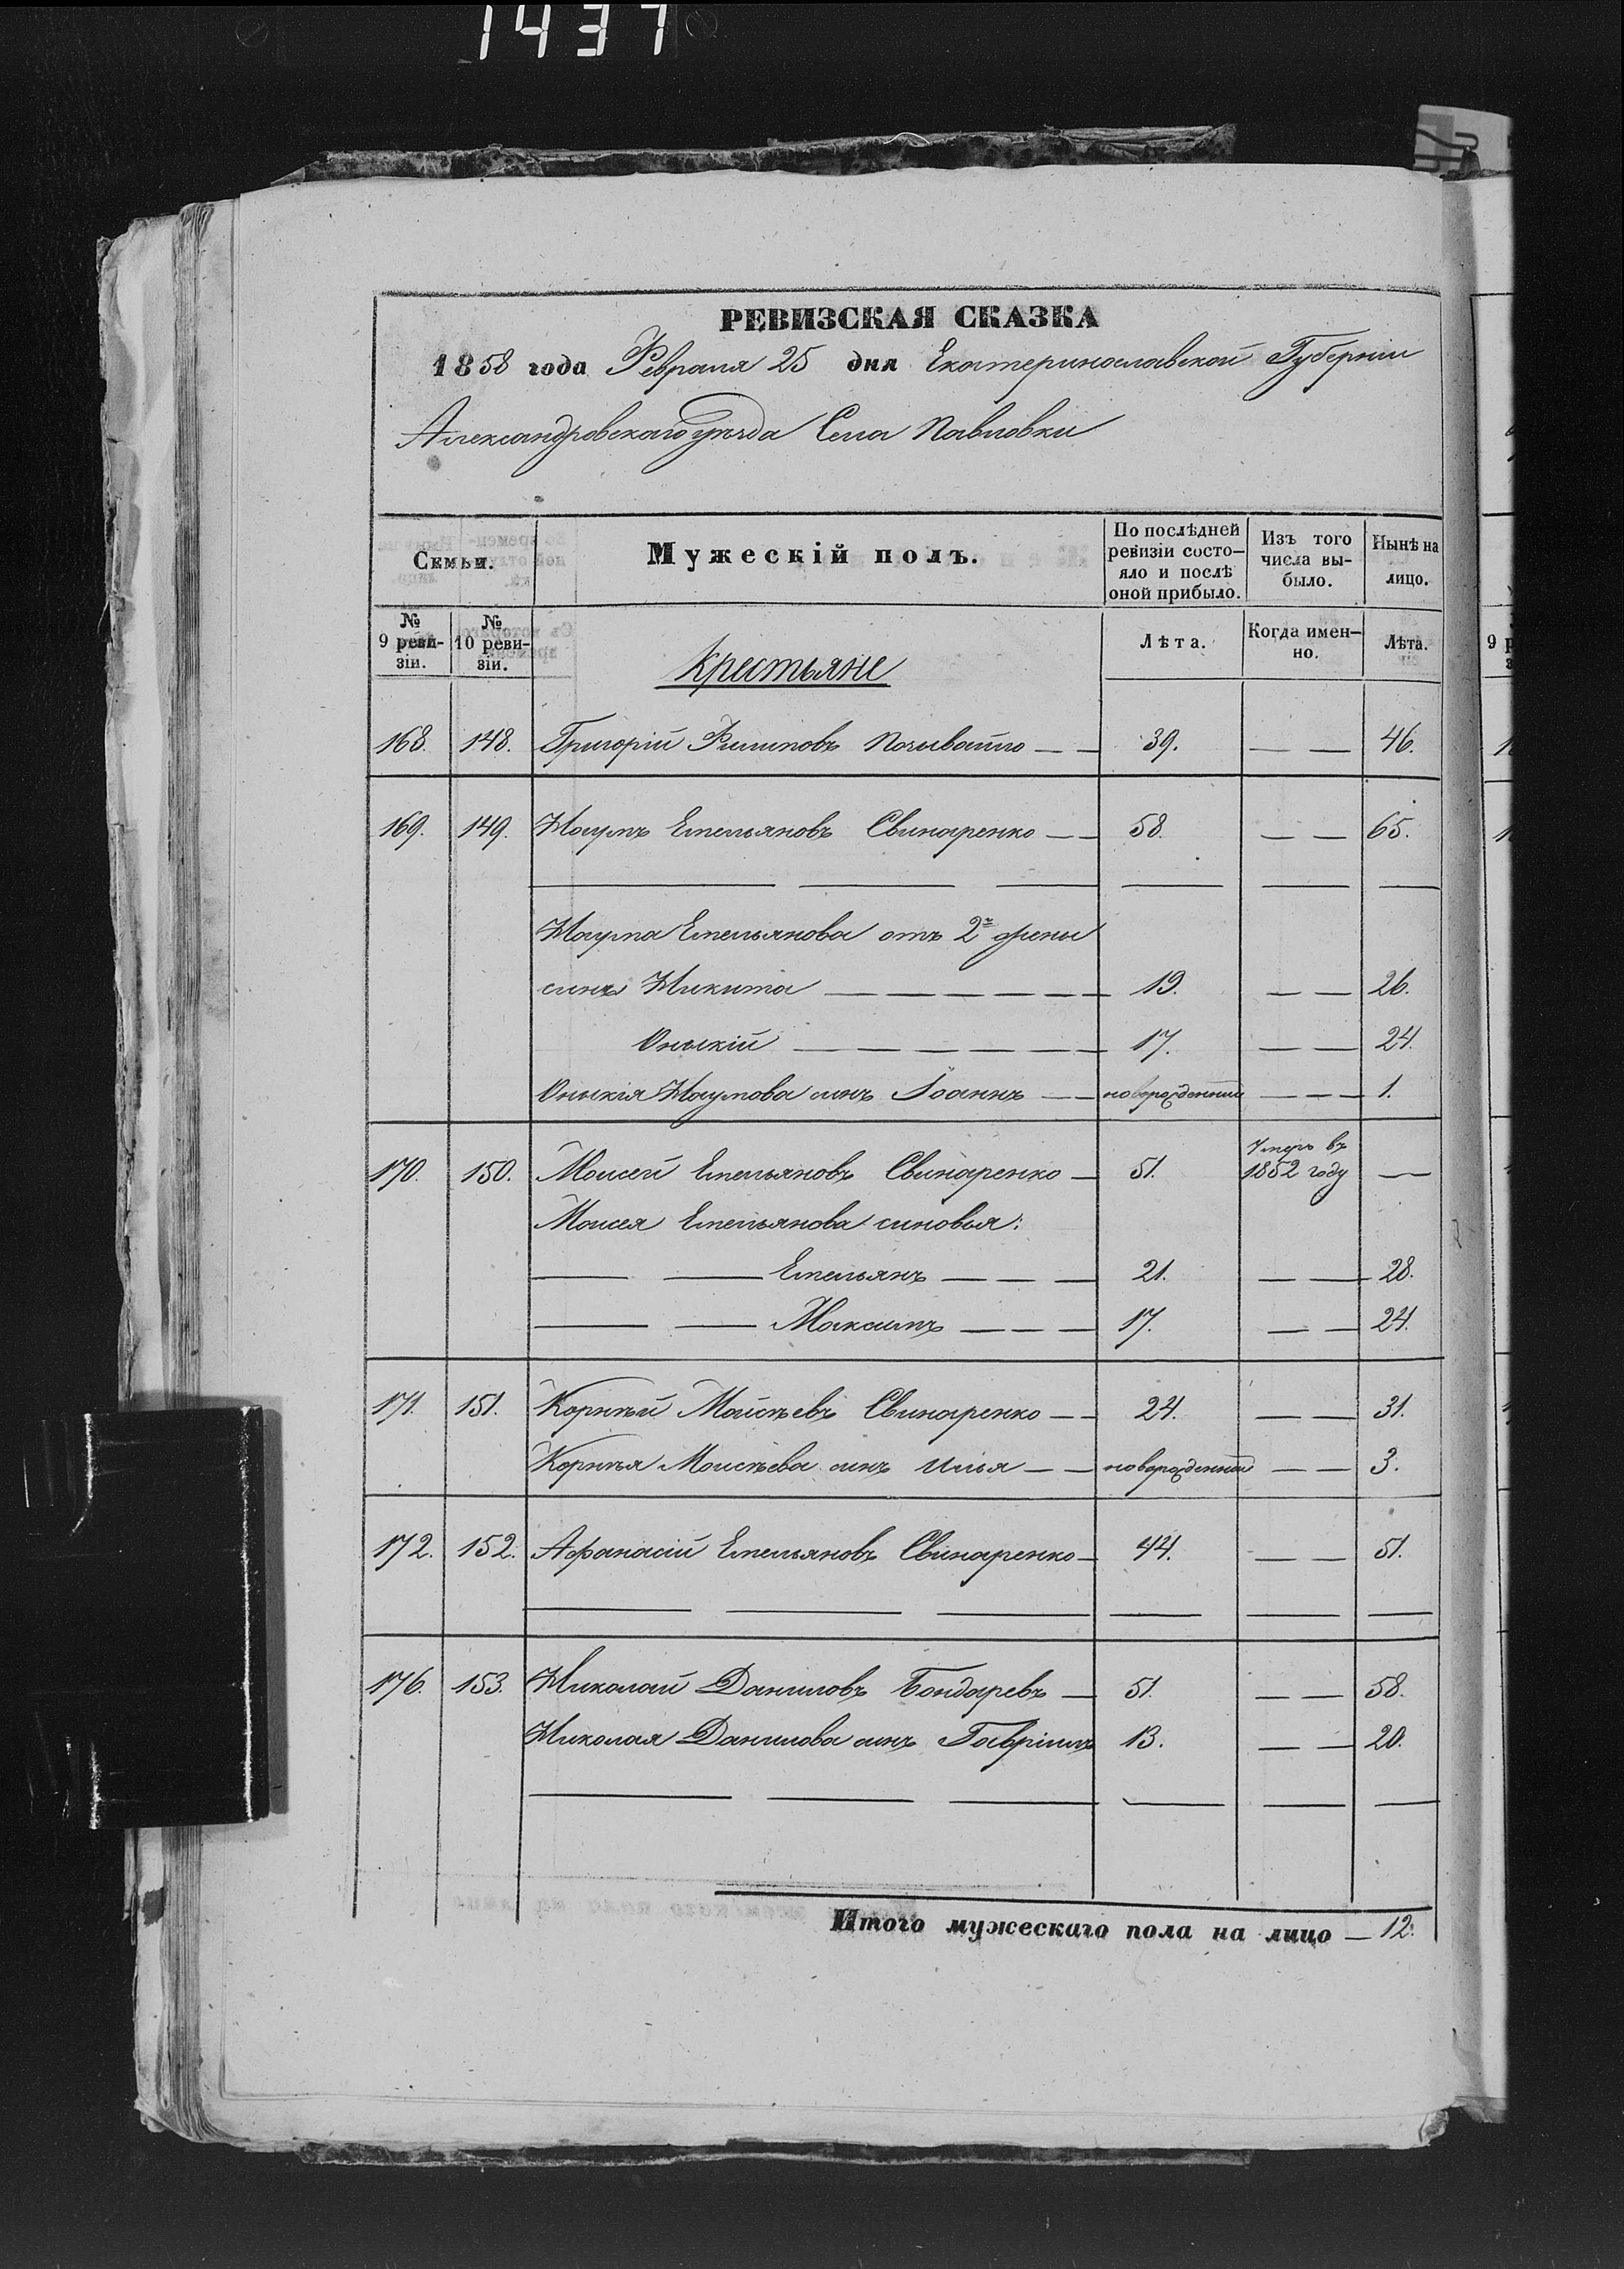 1437
РЕВИЗСКАЯ СКАЗКА
1858 года Февраля 25 дня Екатеринославской Губерніи
Александровскаго уѣзда Села Павловки
Семьи. Мужескій полъ. По послѣдней ревизіи состо-яло и послѣ оной прибыло. Изъ того числа вы-было. Нынѣ на лицо.
№ 9 реви-зіи. № 10 реви-зіи. Лѣта. Когда имен-но. Лѣта.
Крестьяне
168. 148. Григорій Филиповъ — — 39. — — 46.
169. 149. Наумъ Емельяновъ Свинаренко — — 58. — — 65.
Наума Емельянова отъ 2й жены
синъ Никита — — — — — — 19. — — 26.
Оныкій — — — — — — 17. — — 24.
Оныкія Наумова синъ Іоаннъ — — новорожденный — — — 1.
170. 150. Моисей Емельяновъ Свинаренко — 51. Умеръ въ 1852 году —
Моисея Емельянова синовья:
— — Емельянъ — — — 21. — — 28.
— — Максимъ — — — 17. — — 24.
171. 151. Корнѣй Мойсѣевъ Свинаренко — — 24. — — 31.
Корнѣя Моисѣева синъ Илья — — новорожденный — — 3.
172. 152. Афанасій Емельяновъ Свинаренко — 44. — — 51.
176. 153. Николай Даниловъ Бондаревъ — 51. — — 58.
Николая Данилова синъ Гавріилъ 13. — — 20.
Итого мужескаго пола на лицо — 12.